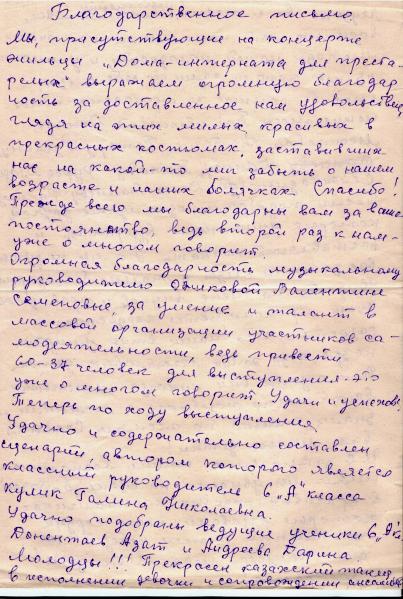 Благодарственное письмо.
Мы, присутствующие на концерте
жильцы „Дома-интерната для преста-
релых" выражаем огромную благодар
ность за доставленное нам удовольствие,
глядя на этих милых, красивых в
прекрасных костюмах, заставивших
нас на какой-то миг забыть о нашем
возрасте и наших болячках. Спасибо!
Прежде всего мы благодарны вам за ваше
постоянство, ведь второй раз к нам-
уже о многом говорит.
Огромная благодарность музыкальному
руководителю Валентине
Семеновне, за умение и талант в
массовой организации участников са-
модеятельности, ведь привести
60-37 человек для выступления-это
уже о многом говорит. Удачи и успехов!
Теперь по ходу выступления.
Удачно и содержательно составлен
сценарий, автором которого является
классный руководитель 6 „А" класса
Кулик Галина Николаевна.
Удачно подобраны ведущие ученики 6 „А" кл.
Донентаев Азат и Андреева Дарина.
Молодцы!!! Прекрасен казахский танец
в исполнении девочки и сопровождении ансамбля